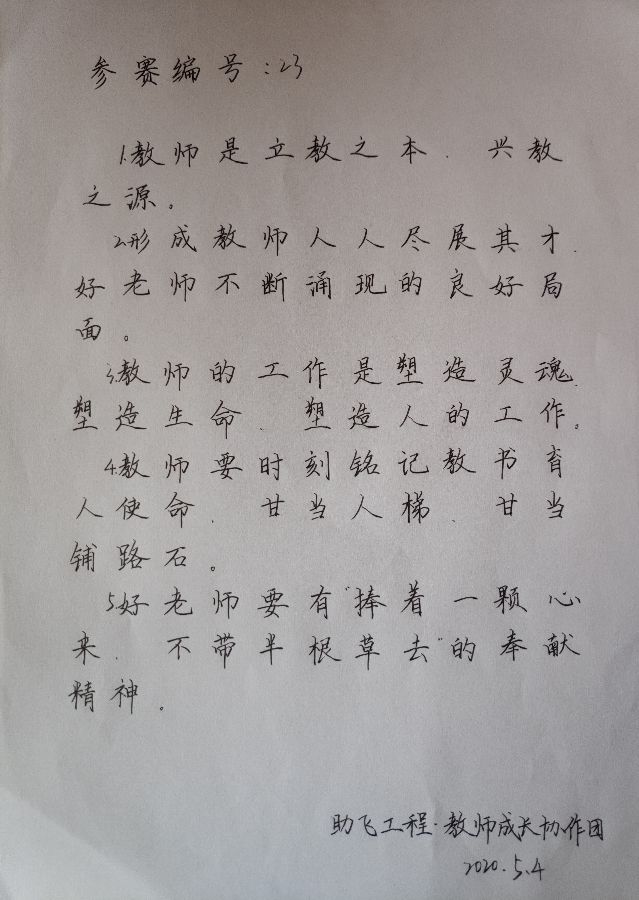 参赛编号:23
1.教师是立教之本、兴教
之源。
2.形成教师人人尽展其才、
好老师不断涌现的良好局
面。
3.教师的工作是塑造灵魂、
塑造生命、塑造人的工作。
4.教师要时刻铭记教书育
人使命、甘当人梯、甘当
铺路石。
5.好老师要有“捧着一颗心
来、不带半根草去”的奉献
精神。
助飞工程·教师成长协作团
2020.5.4